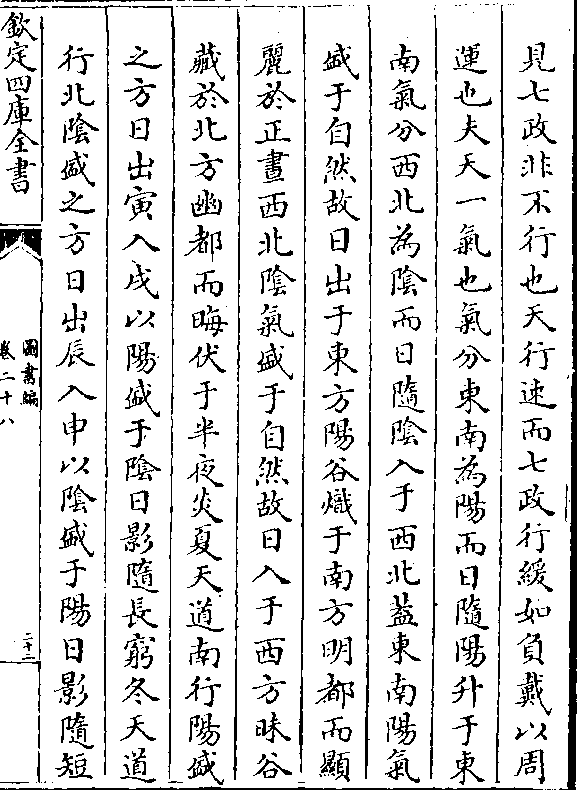 見七政非不行也天行速而七政行緩如負戴以周
運也夫天一氣也氣分東南為陽而日隨陽升于東
南氣分西北為陰而日隨陰入于西北葢東南陽氣
盛于自然故日出于東方陽谷熾于南方明都而顯
麗於正晝西北陰氣盛于自然故日入于西方昧谷
藏於北方幽都而晦伏于半夜炎夏天道南行陽盛
之方日出寅入戌以陽盛于陰日影隨長窮冬天道
行北陰盛之方日出辰入申以陰盛于陽日影隨短
欽定四庫全書
圖書編
卷二十八
二十二